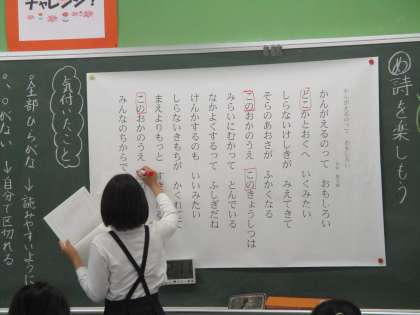 チャレンジ！
め 詩を楽しもう
かんがえるのって　おもしろい
かんがえるのって　おもしろい
どこかとおくへ　いくみたい
しらないけしきが　みえてきて
そらのあおさが　ふかくなる
このおかのうえ　このきょうしつは
みらいにむかって　とんでいる
なかよくするって　ふしぎだね
けんかするのも　いいみたい
しらないきもちが　かくれてて
まえよりもっと
このおかのうえ
みんなのちからで
気付いたこと
・全部ひらがな　→読みやすいように
・、。がない　→自分で区切れる